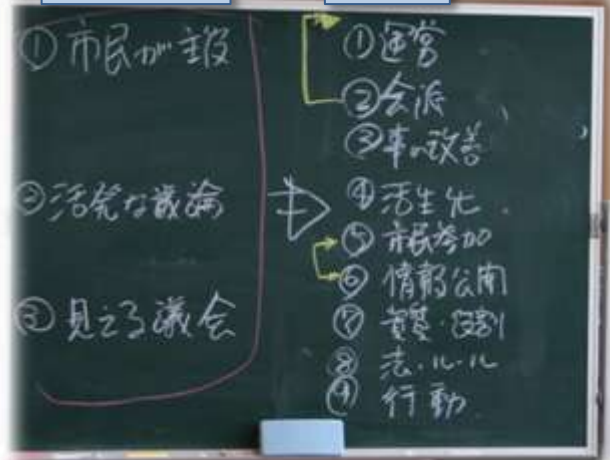 ① 市民が主役
② 活発な議論
③ 見える議会
① 運営
② 会派
③ 事の改善
④ 活性化
⑤ 市民参加
⑥ 情報公開
⑦ 資質・役割
⑧ 志・ルール
⑨ 行動